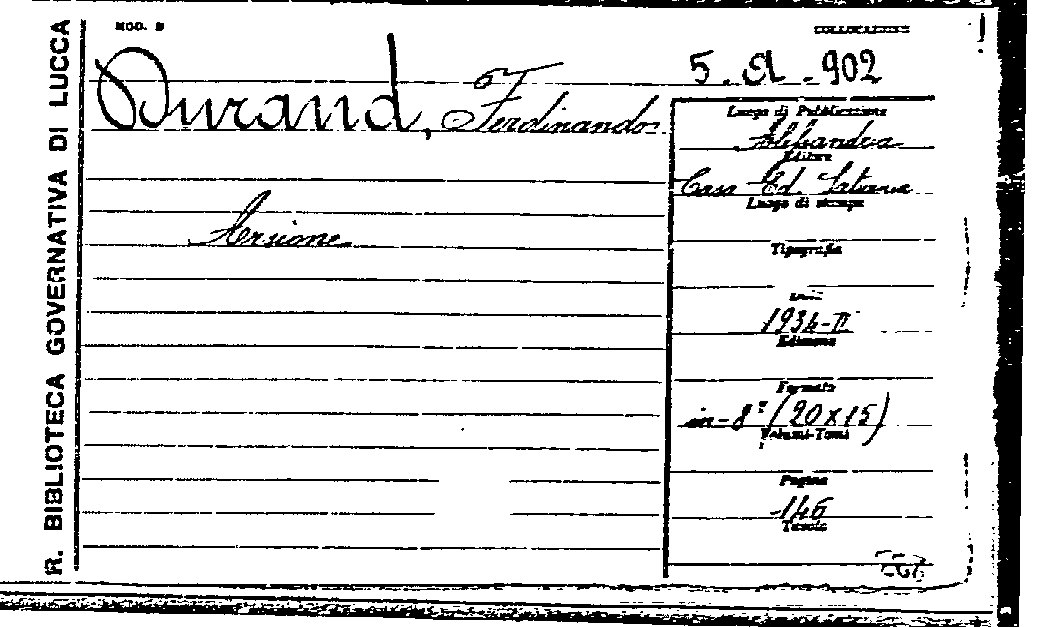 R. BIBLIOTECA GOVERNATIVA DI LUCCA
MOD. B
COLLOCAZIONE
5. A. 902
Durand, Ferdinando
Luogo di Pubblicazione
Editore
Casa Ed.
Luogo di stampa
Tipografia
Data
1934-II
Edizione
Formato
in-8° (20x15)
Volumi-Tomi
Pagine
146
Tavole